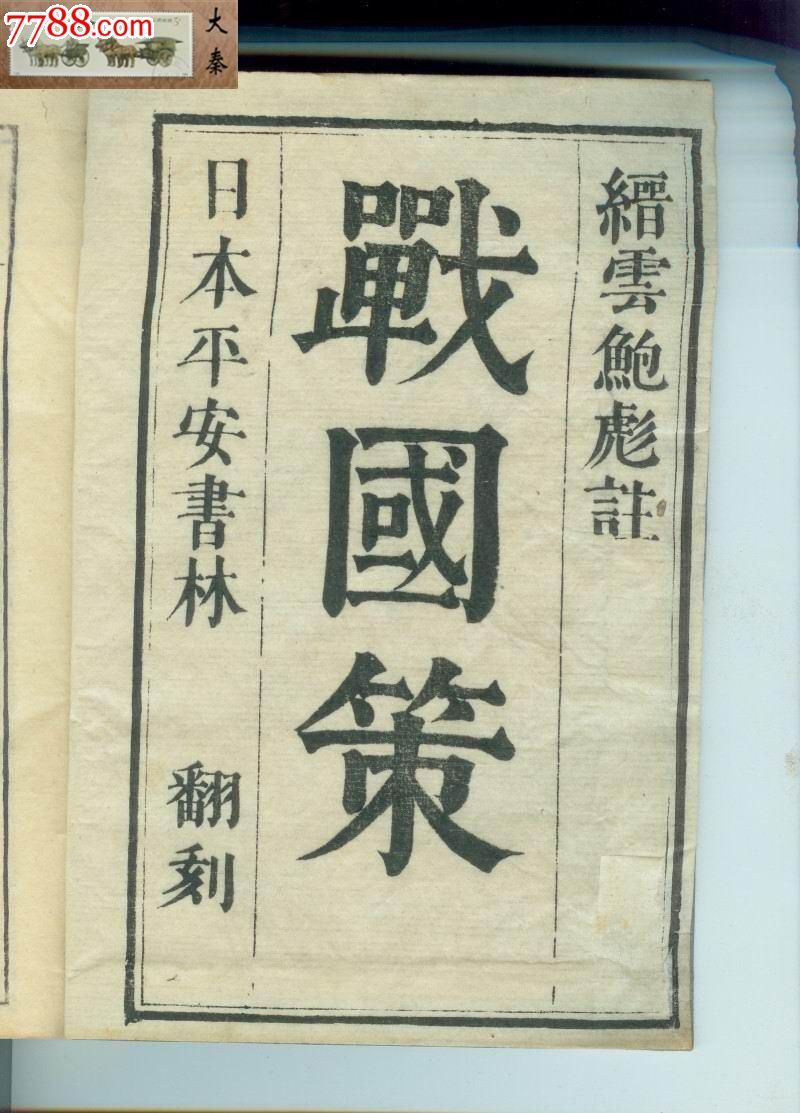 7788.com
大秦
縉雲鮑彪註
戰國策
日本平安書林 翻刻